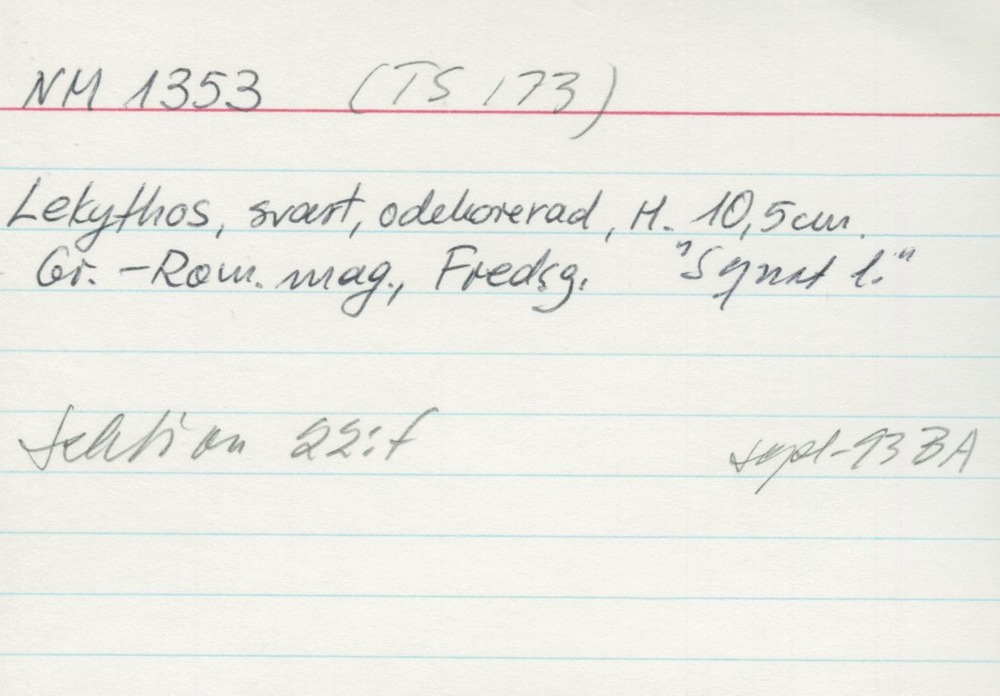 NM 1353 (TS 173)
Lekythos, svart, odekorerad, H. 10,5 cm.
Gr. - Rom. mag., Fredsg.
Sektion 22:f
sept-93 BA